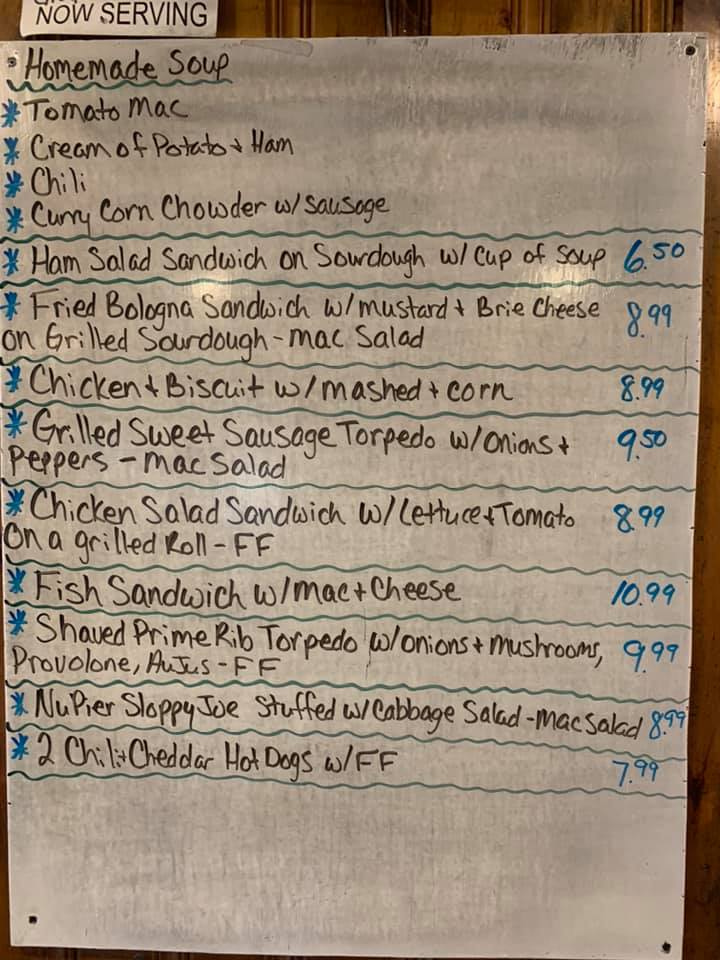 NOW SERVING
Homemade Soup
* Tomato Mac
* Cream of Potato + Ham
* Chili
* Curry Corn Chowder w/ Sausage
* Ham Salad Sandwich on Sourdough w/ Cup of Soup 6.50
* Fried Bologna Sandwich w/ mustard + Brie Cheese 8.99
on Grilled Sourdough - Mac Salad
* Chicken + Biscuit w/ mashed + corn 8.99
* Grilled Sweet Sausage Torpedo w/ onions + 9.50
Peppers - Mac Salad
* Chicken Salad Sandwich w/ Lettuce + Tomato 8.99
On a grilled Roll - FF
* Fish Sandwich w/ mac + Cheese 10.99
* Shaved Prime Rib Torpedo w/ onions + mushrooms, 9.99
Provolone, AuJus - FF
* NuPier Sloppy Joe Stuffed w/ Cabbage Salad - Mac Salad 8.99
* 2 Chili + Cheddar Hot Dogs w/ FF 7.99